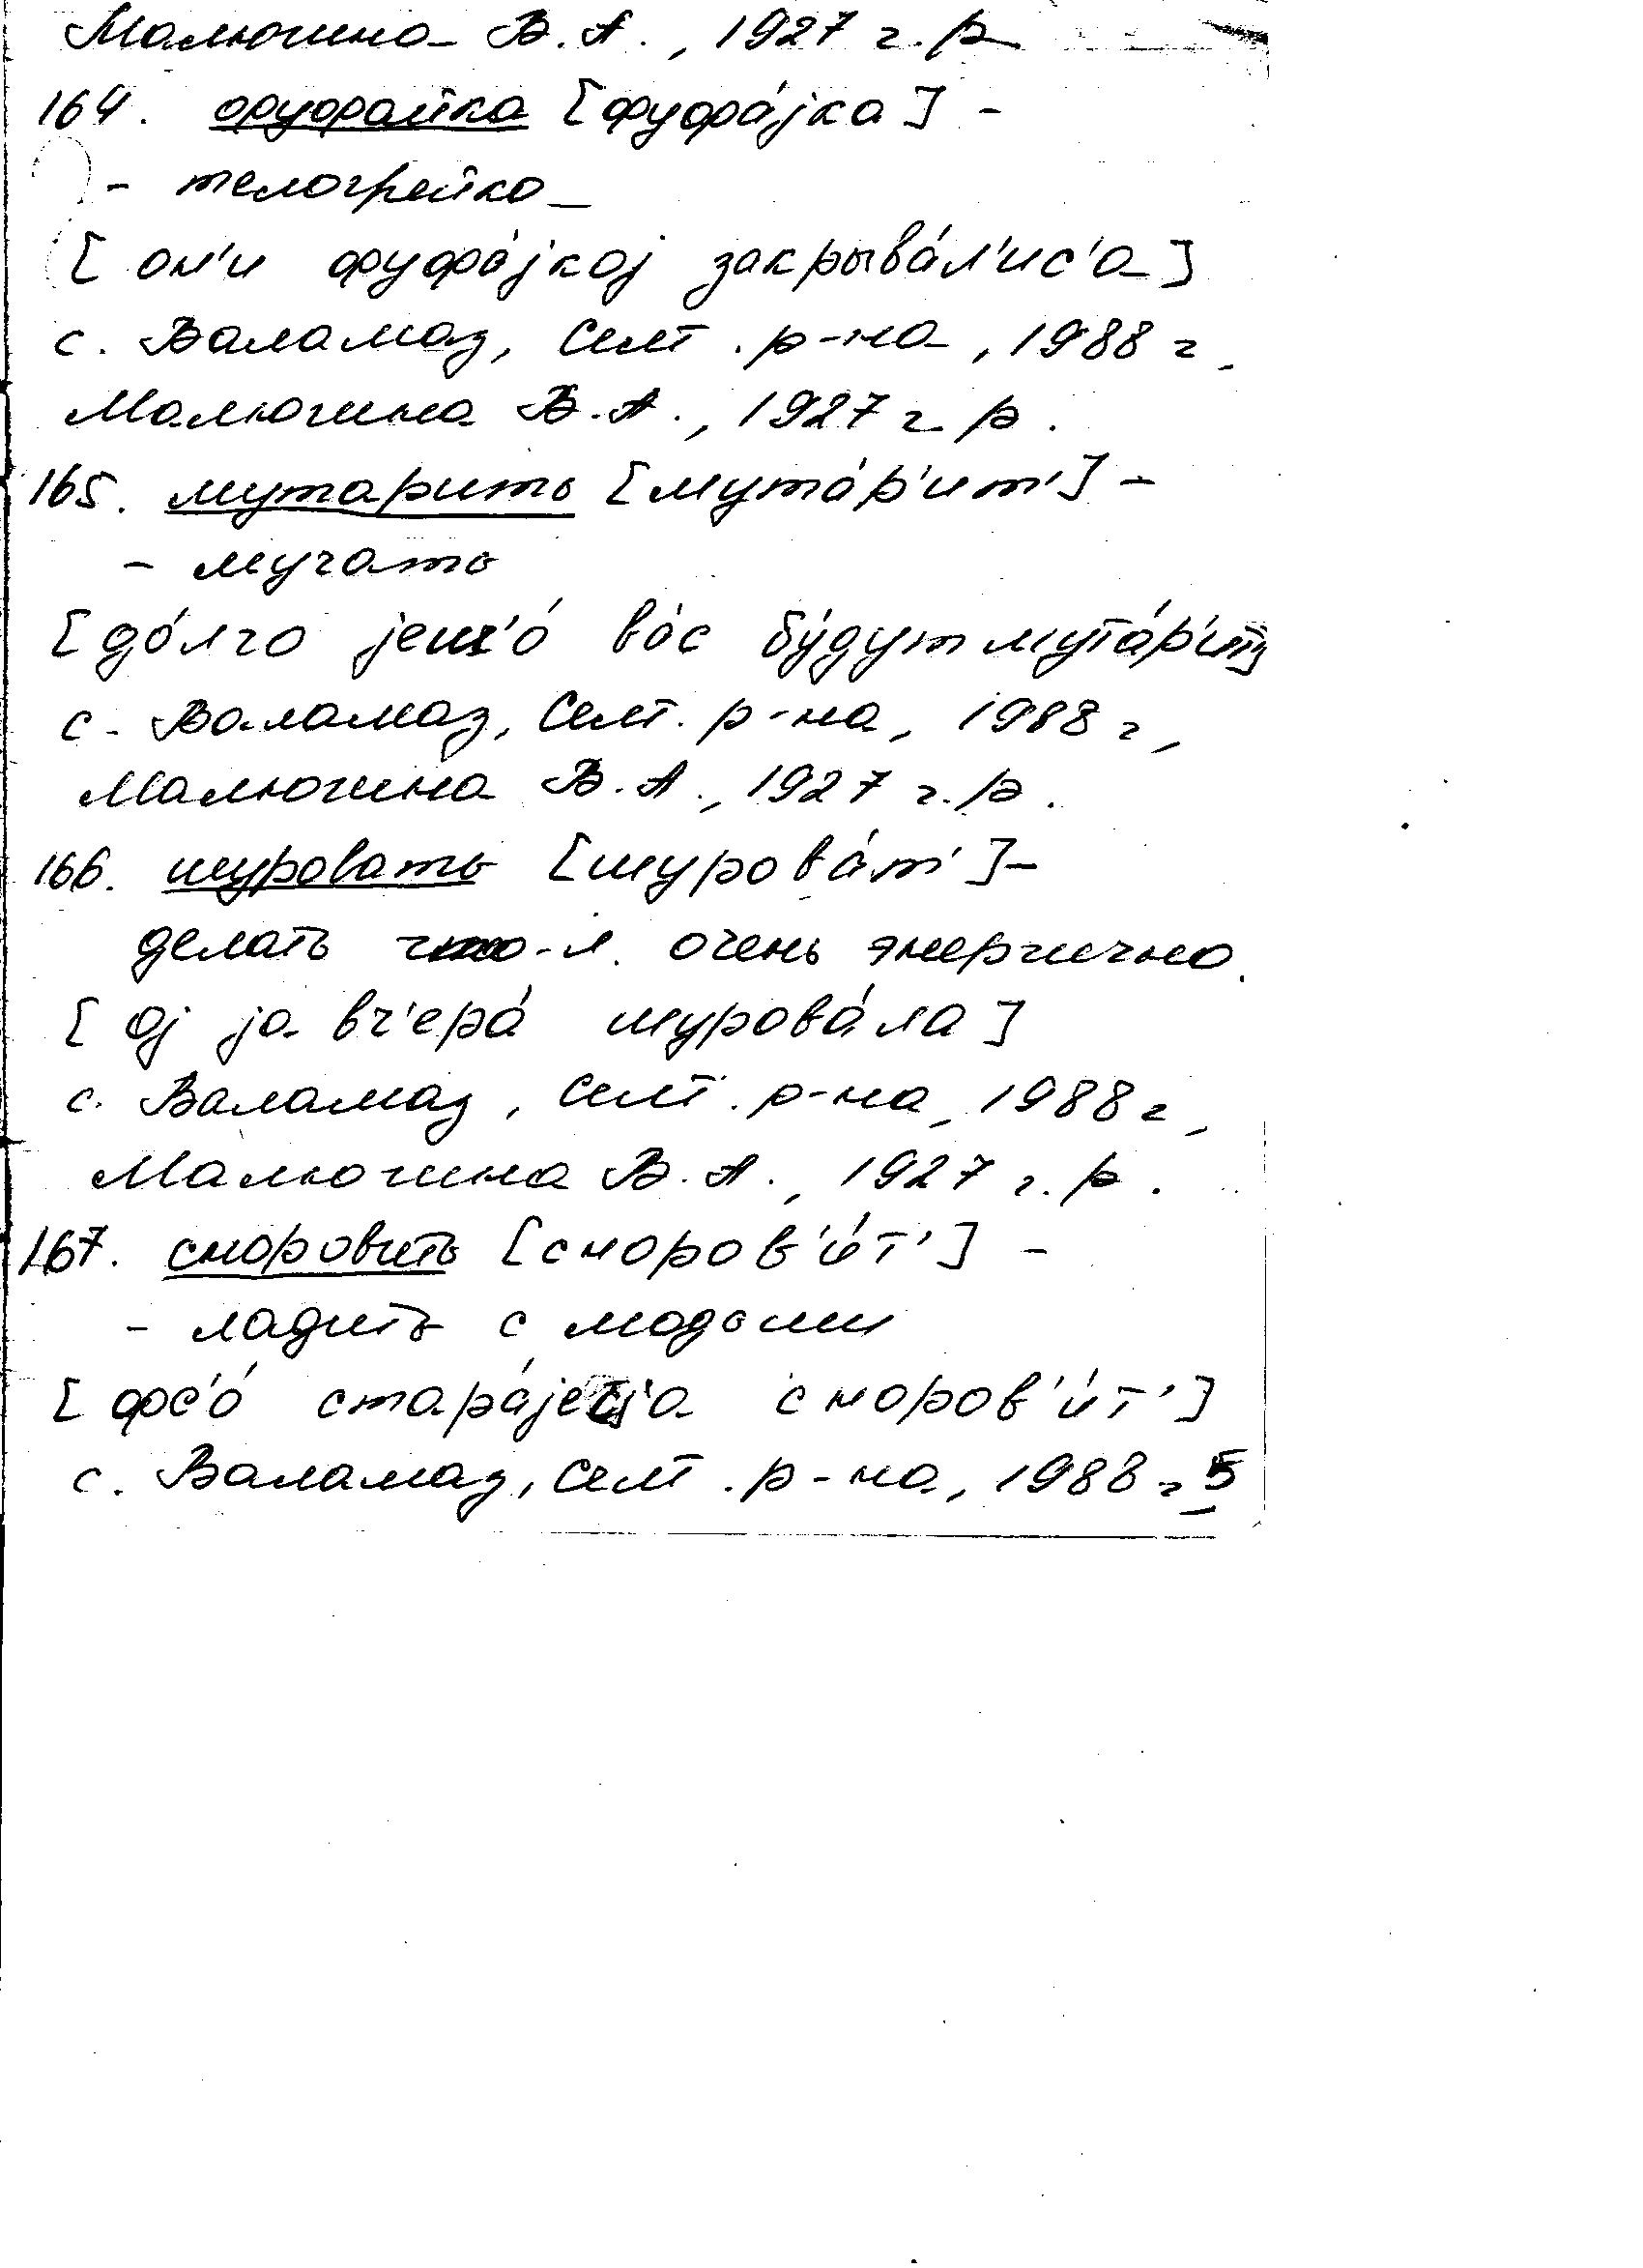 Малюгина В.А., 1927 г.р
164. фуфайка [фуфа́јка] -
- телогрейка
[он'и фуфа́јкој закрыва́л'ис'а]
с. Валамаз, Селт. р-на, 1988 г,
Малюгина В.А., 1927 г р.
165. мутарить [мута́р'ит'] -
- мучать
[до́лго јешч'о́ ва́с бу́дут мута́р'ит']
с. Валамаз, Селт. р-на, 1988 г,
Малюгина В.А., 1927 г.р.
166. шуровать [шурова́т'] -
делать что-л. очень энергично.
[ој ја вч'ера́ шурова́ла]
с. Валамаз, Селт. р-на, 1988 г,
Малюгина В.А., 1927 г.р.
167. сноровить [сноров'и́т'] -
- ладить с людьми
[фс'о́ снoров'и́т']
с. Валамаз, Селт. р-на, 1988 г, 5